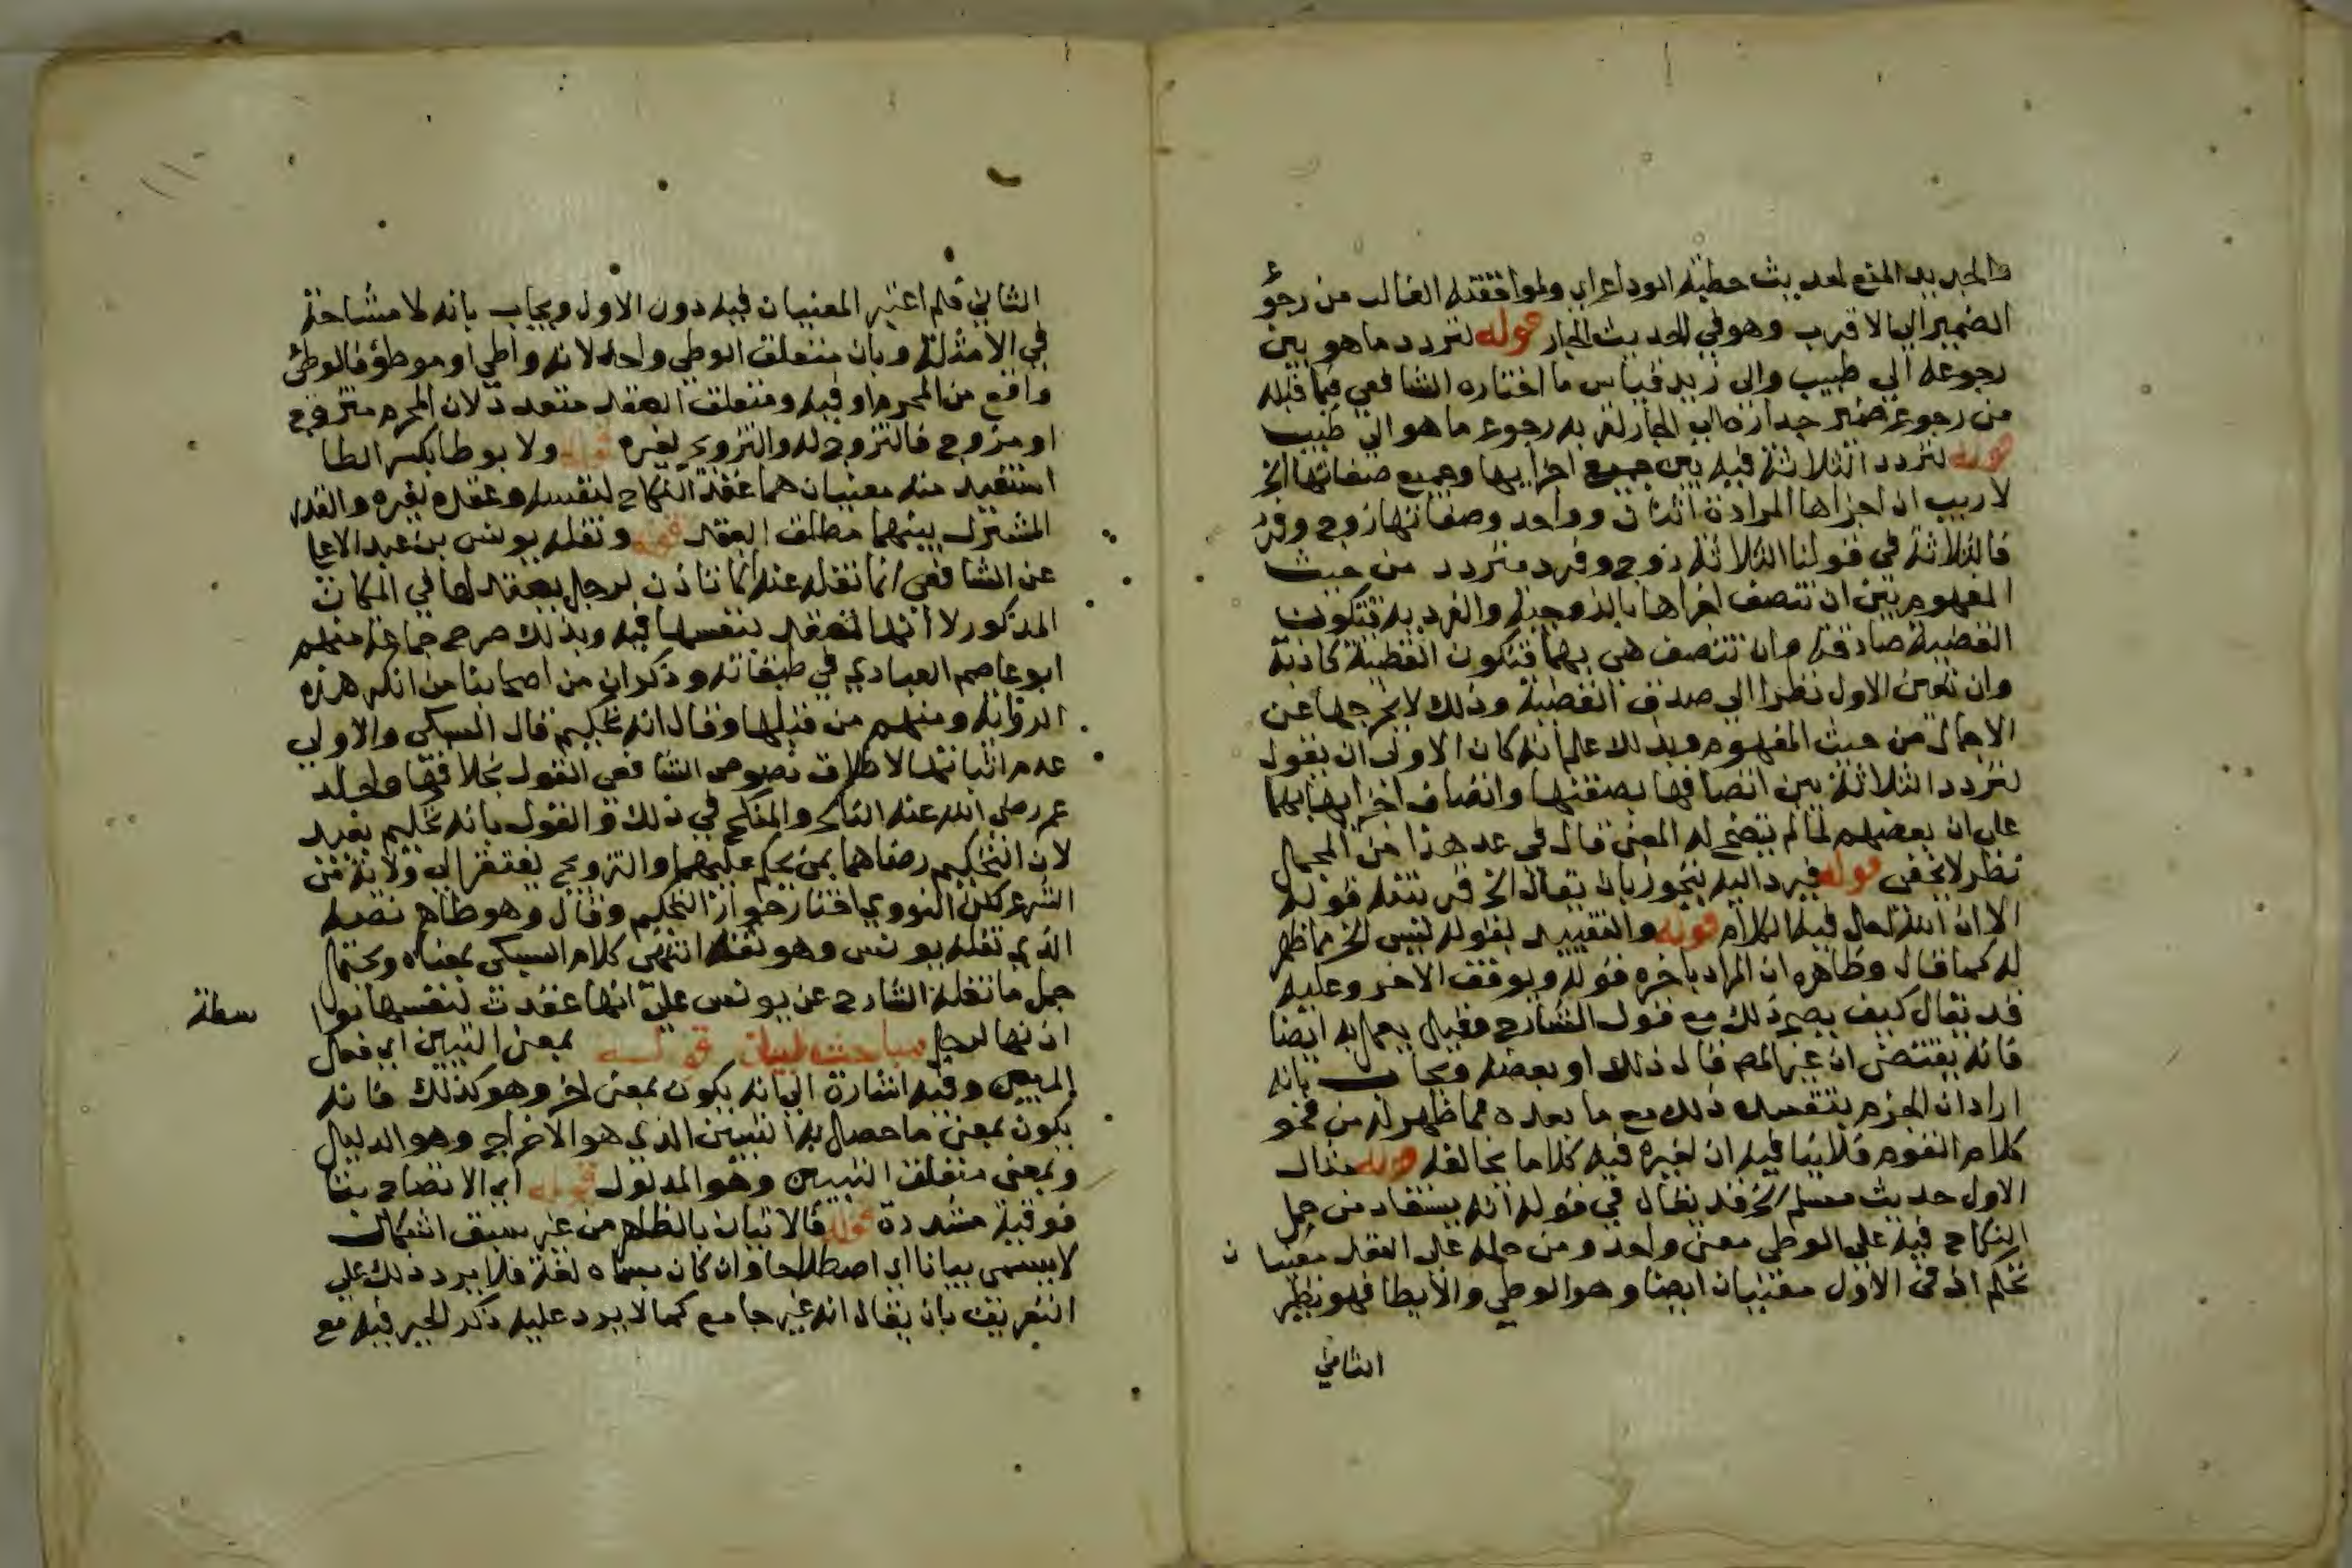 والجديد المنع لحديث خطبة الوداع اي ولموافقته الغالب من رجوع
الضمير الي الاقرب وهو في الحديث الجار قوله لتردد ما هو بين
رجوعه الي طبيب والي زيد قياس ما اختاره الشافعي فيما قبله
من رجوع ضمير جداره الي الجار لقربه رجوع ما هو الي طبيب
قوله لتردد الثلاثة فيه بين جميع اجزايها وجميع صفاتها الخ
لا ريب ان اجزاها المرادة اثنان وواحد وصفاتها زوج وفرد
فالثلاثة في قولنا الثلاثة زوج وفرد متردد من حيث
المفهوم بين ان تتصف اجزاها بالزوجية والفردية فتكون
القضية صادقة وان تتصف هي بهما فتكون القضية كاذبة
وان تعين الاول نظرا الي صدق القضية وذلك لا يخرجها عن
الاجمال من حيث المفهوم وبذلك علم انه كان الاولى ان يقول
لتردد الثلاثة بين اتصافها بصفتها واتصاف اجزايها بهما
على ان بعضهم لما لم يتضح له المعنى قال في عد هذا من المجمل
نظر لا يخفى قوله فيرد اليه بتجوز بان يقال الخ في قوله
الا ان الله احل فيه الكلام قوله والتقييد بقوله ليس الخ مما ظهر
له كما قال وظاهره ان المراد باخره قوله وبوقف الاخر وعليه
قد يقال كيف يصح ذلك مع قول الشارح وقيل يعمل به ايضا
فانه يقتضي ان غير المص قال ذلك او بعضه ويجاب بانه
اراد ان الجزم بتقييده ذلك مع ما بعده مما ظهر له من نحو
كلام القوم فلا ينافيه ان لغيره فيه كلاما يخالفه قوله مثال
الاول حديث مسلم الخ قد يقال في قوله انه يستفاد من حمل
النكاح فيه علي الوطي معنى واحد ومن حمله على العقد معنيان
تحكم اذ في الاول معنيان ايضا وهو الوطي والايطا فهو نظير
الثاني
الثاني فلم اعتبر المعنيان فيه دون الاول ويجاب بانه لا مشاحة
في الامثلة وبان متعلق الوطي واحد لانه واطي او موطؤ فالوطئ
واقع من المحرم او فيه ومتعلق العقد متعدد لان المحرم متزوج
او مزوج فالتزوج له والتزويج لغيره قوله ولا يوطا بكسر الطا
استفيد منه معنيان هما عقد النكاح لنفسه وعقده لغيره والقدر
المشترك بينهما مطلق العقد قوله ونقله يونس بن عبد الاعلا
عن الشافعي انما نقله عنه انما تاذن لرجل يعقد لها في المكان
المذكور لا انها تعقد بنفسها فيه وبذلك صرح جماعة منهم
ابو عاصم العبادي في طبقاته وذكر ان من اصحابنا من انكر هذه
الرواية ومنهم من قبلها وقال انه تحكيم قال السبكي والاولي
عدم اثباتها لاطلاق نصوص الشافعي القول بخلافها ولجلد
عمر رضي الله عنه الناكح والمنكح في ذلك والقول بانه تحكيم بعيد
لان التحكيم رضاهما بمن يحكم عليهما والتزويج يفتقر الي ولاية من
الشرع لكن النووي اختار جواز التحكيم وقال وهو ظاهر نصه
الذي نقله يونس وهو ثقة انتهى كلام السبكي بمعناه ويحتمل
حمل ما نقله الشارح عن يونس على انها عقدت لنفسها بوا
سطة
اذنها لرجل مباحث البيان قوله بمعنى التبيين اي فعل
المبين وفيه اشارة الي انه يكون بمعنى اخر وهو كذلك فانه
يكون بمعنى ما حصل به التبيين الذي هو الاخراج وهو الدليل
وبمعنى متعلق التبيين وهو المدلول قوله اي الاتضاح بتا
فوقية مشددة قوله فالاتيان بالظاهر من غير سبق اشكال
لا يسمى بيانا اي اصطلاحا وان كان يسماه لغة فلا يرد ذلك علي
التعريف بان يقال انه غير جامع كما لا يرد عليه ذكر الحيز فيه مع